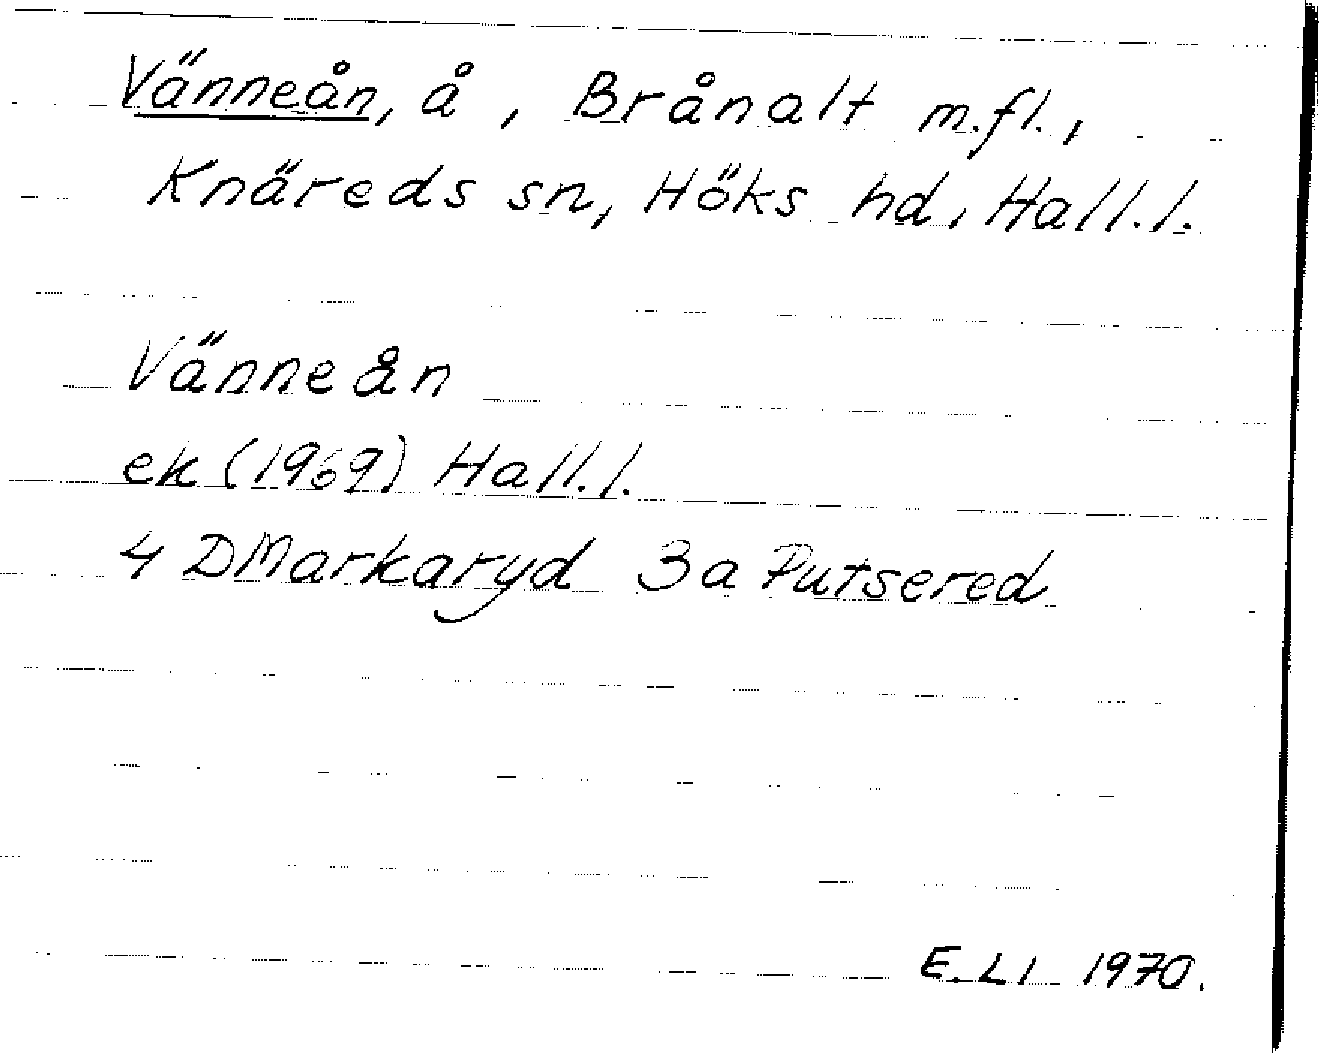 Vänneån, å, Brånalt m.fl.,
Knäreds sn, Höks hd, Hall.l.
Vänneån
ek (1969) Hall.l.
4 D Markaryd 3a Putsered
E.Ll 1970.